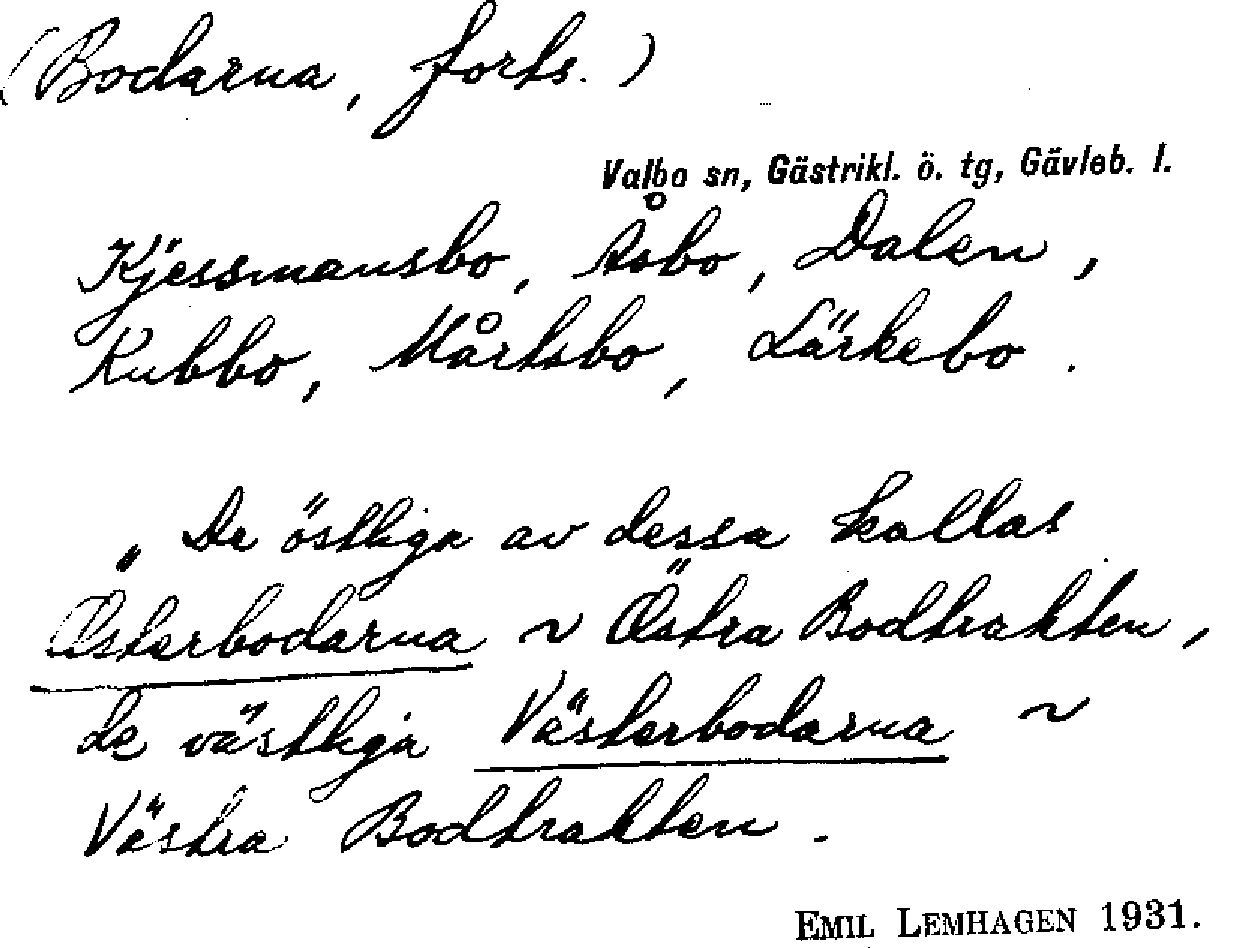 (Bodarna, forts.)
Valbo sn, Gästrikl. ö. tg, Gävleb. l.
Kjessmansbo, Åsbo, Dalen,
Rubbo, Mårtsbo, Lärkebo.
„ De östliga av dessa kallas
Österbodarna ~ Östra Bodtrakten,
de västliga Västerbodarna ~
Västra Bodtrakten.
EMIL LEMHAGEN 1931.